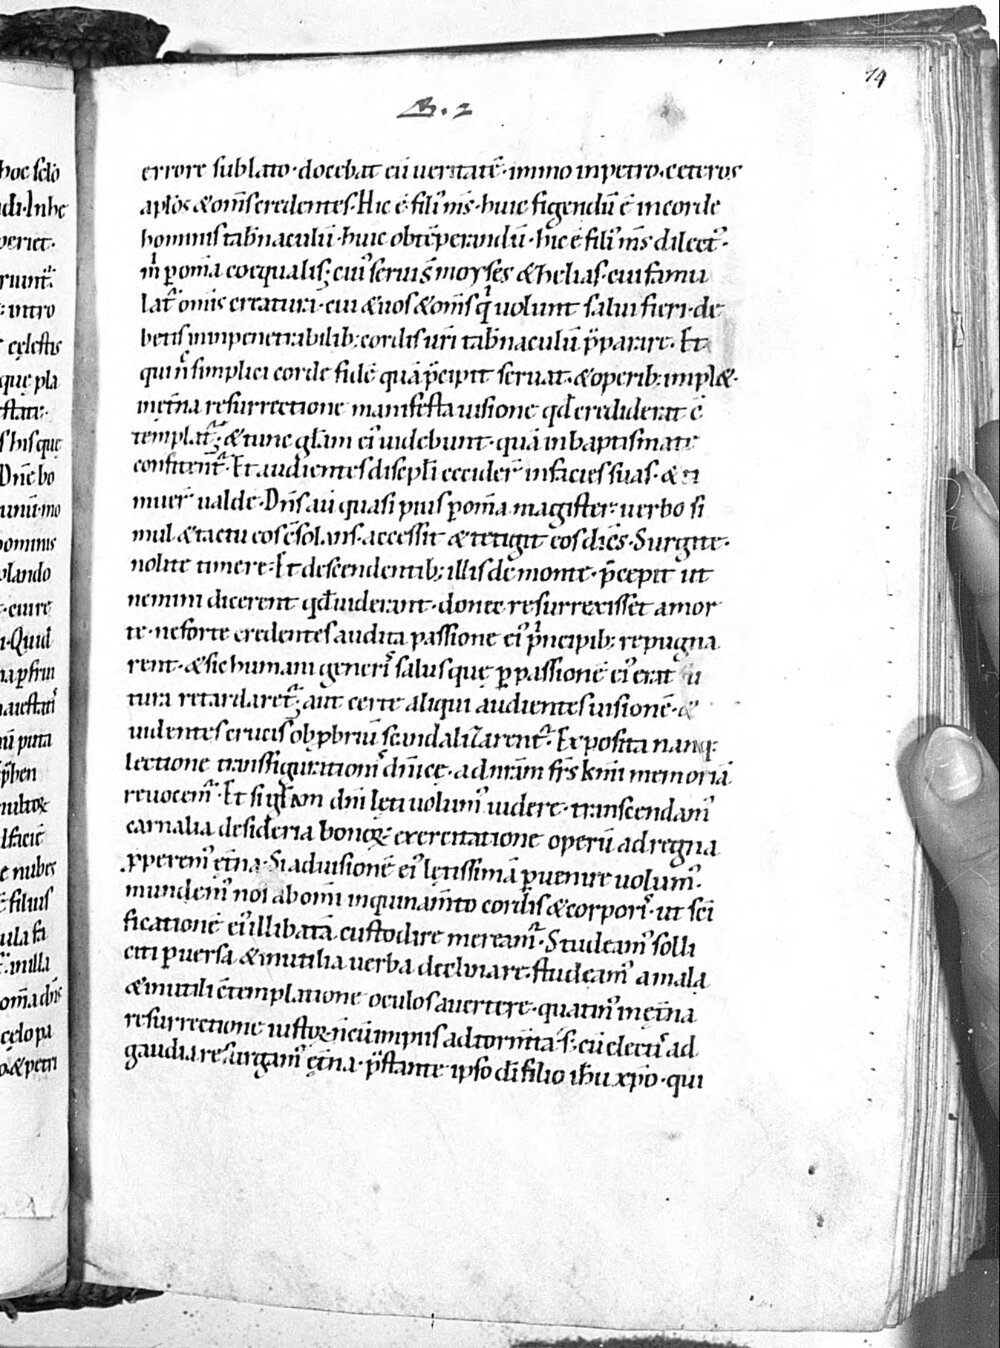 14
B. 2
errore sublato · docebat eū veritatē · immo inpetro · ceteros
aplōs & om̄s credentes. Hic ē fili᾽ m̄s · huic figendū ē incorde
hominis tab̄naculū · huic obtēperandū · hic ē fili᾽ m̄s dilect᾽ ·
m̄ p om̄a coequalis; cui᾽ seruis̄ moyses & helias · cui famu
lat᾽ omīs creatura · cui & uos & om̄s q̄ uolunt salui fieri · de
betis inimpenetrabilib; cordis ur̄i tab̄naculū p̄parare. Et
qui n̄ simplici corde fidē quā p̄cipit seruat · & operib; impl& ·
inęt̄na resurrectione manifesta uisione qd̄ crediderat ē
templat᾽; & tunc gl̄am ei᾽ uidebunt · quā in baptismate
confitent᾽. Et audientes discipl̄i cecider̄ in facies suas · & ti
muer̄ ualde · Dn̄s aū quasi pius p om̄a magister · uerbo si
mul & tactu eos c̄solans · accessit & tetigit eos dic̄s · Surgite ·
nolite timere · Et descendentib; illis de monte · p̄cepit ut
nemini dicerent qd̄ uiderant · donec resurrexisset amor
te · ne forte credentes audita passione ei᾽ p̄ncipib; repugna
rent · & sic humani generis salus quę p passionē ei᾽ erat fu
tura retardaret᾽; aut certe aliqui audientes uisionē · &
uidentes crucis obp̄briū scandalizarent᾽. Exposita nanq;
lectione transfigurationis dn̄ice · ad nr̄am fr̄s km̄i memoriā
reuocem᾽ · Et si gl̄am dn̄i lęti uolum᾽ uidere · transcendam᾽
carnalia desideria bonoꝝ exercitatione operū ad regna
ꝓperem᾽ ęt̄na · Si ad uisionē ei᾽ lętissimā puenire uolum᾽ ·
mundem᾽ nos ab om̄i inquinam̄to cordis & corporis · ut sc̄i
ficationē ei᾽ illibatā custodire meream᾽ · Studeam᾽ solli
citi puersa & inutilia uerba declinare · studeam᾽ a mala
& inutili c̄templatione oculos auertere · quatin᾽ in ęt̄na
resurrectione iustoꝝ n̄ cū impiis ad torm̄ta · s; cū electis ad
gaudia resurgam᾽ ęt̄na · p̄stante ipso dī filio ih̄u xp̄o · qui